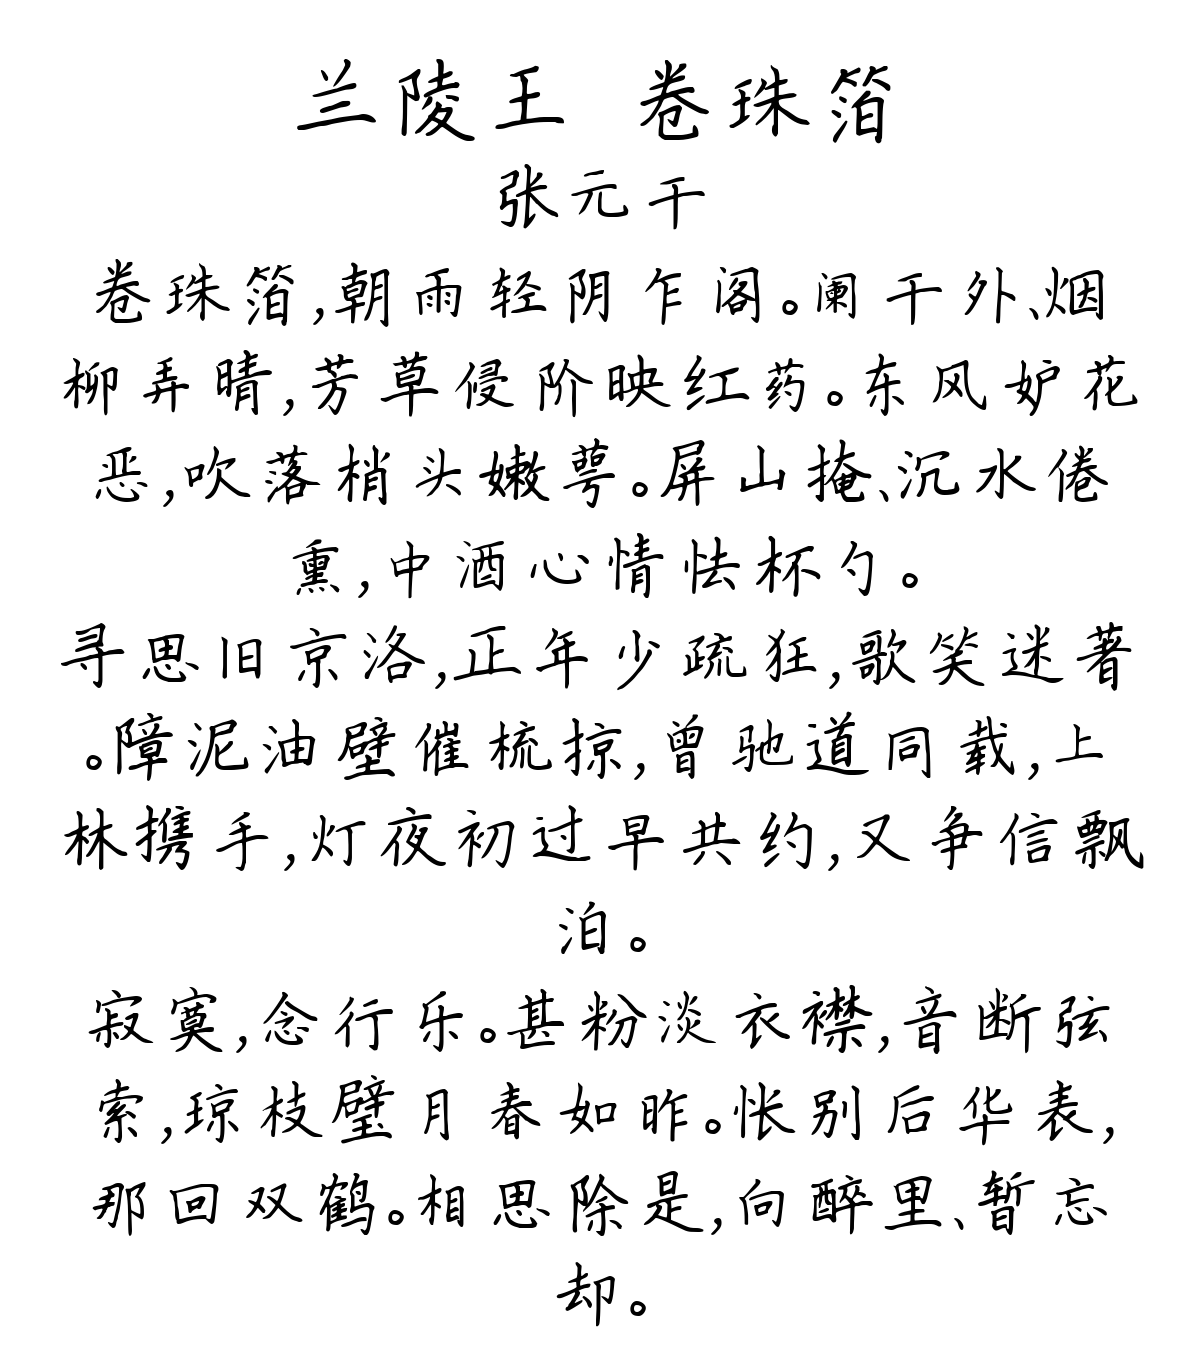 兰陵王 卷珠箔
张元干
卷珠箔,朝雨轻阴乍阁。阑干外、烟
柳弄晴,芳草侵阶映红药。东风妒花
恶,吹落梢头嫩萼。屏山掩、沉水倦
熏,中酒心情怯杯勺。
寻思旧京洛,正年少疏狂,歌笑迷著
。障泥油壁催梳掠,曾驰道同载,上
林携手,灯夜初过早共约,又争信飘
泊。
寂寞,念行乐。甚粉淡衣襟,音断弦
索,琼枝璧月春如昨。怅别后华表,
那回双鹤。相思除是,向醉里、暂忘
却。